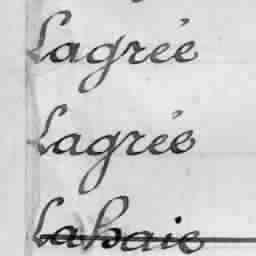 Lagrée
Lagrée
Lahaie